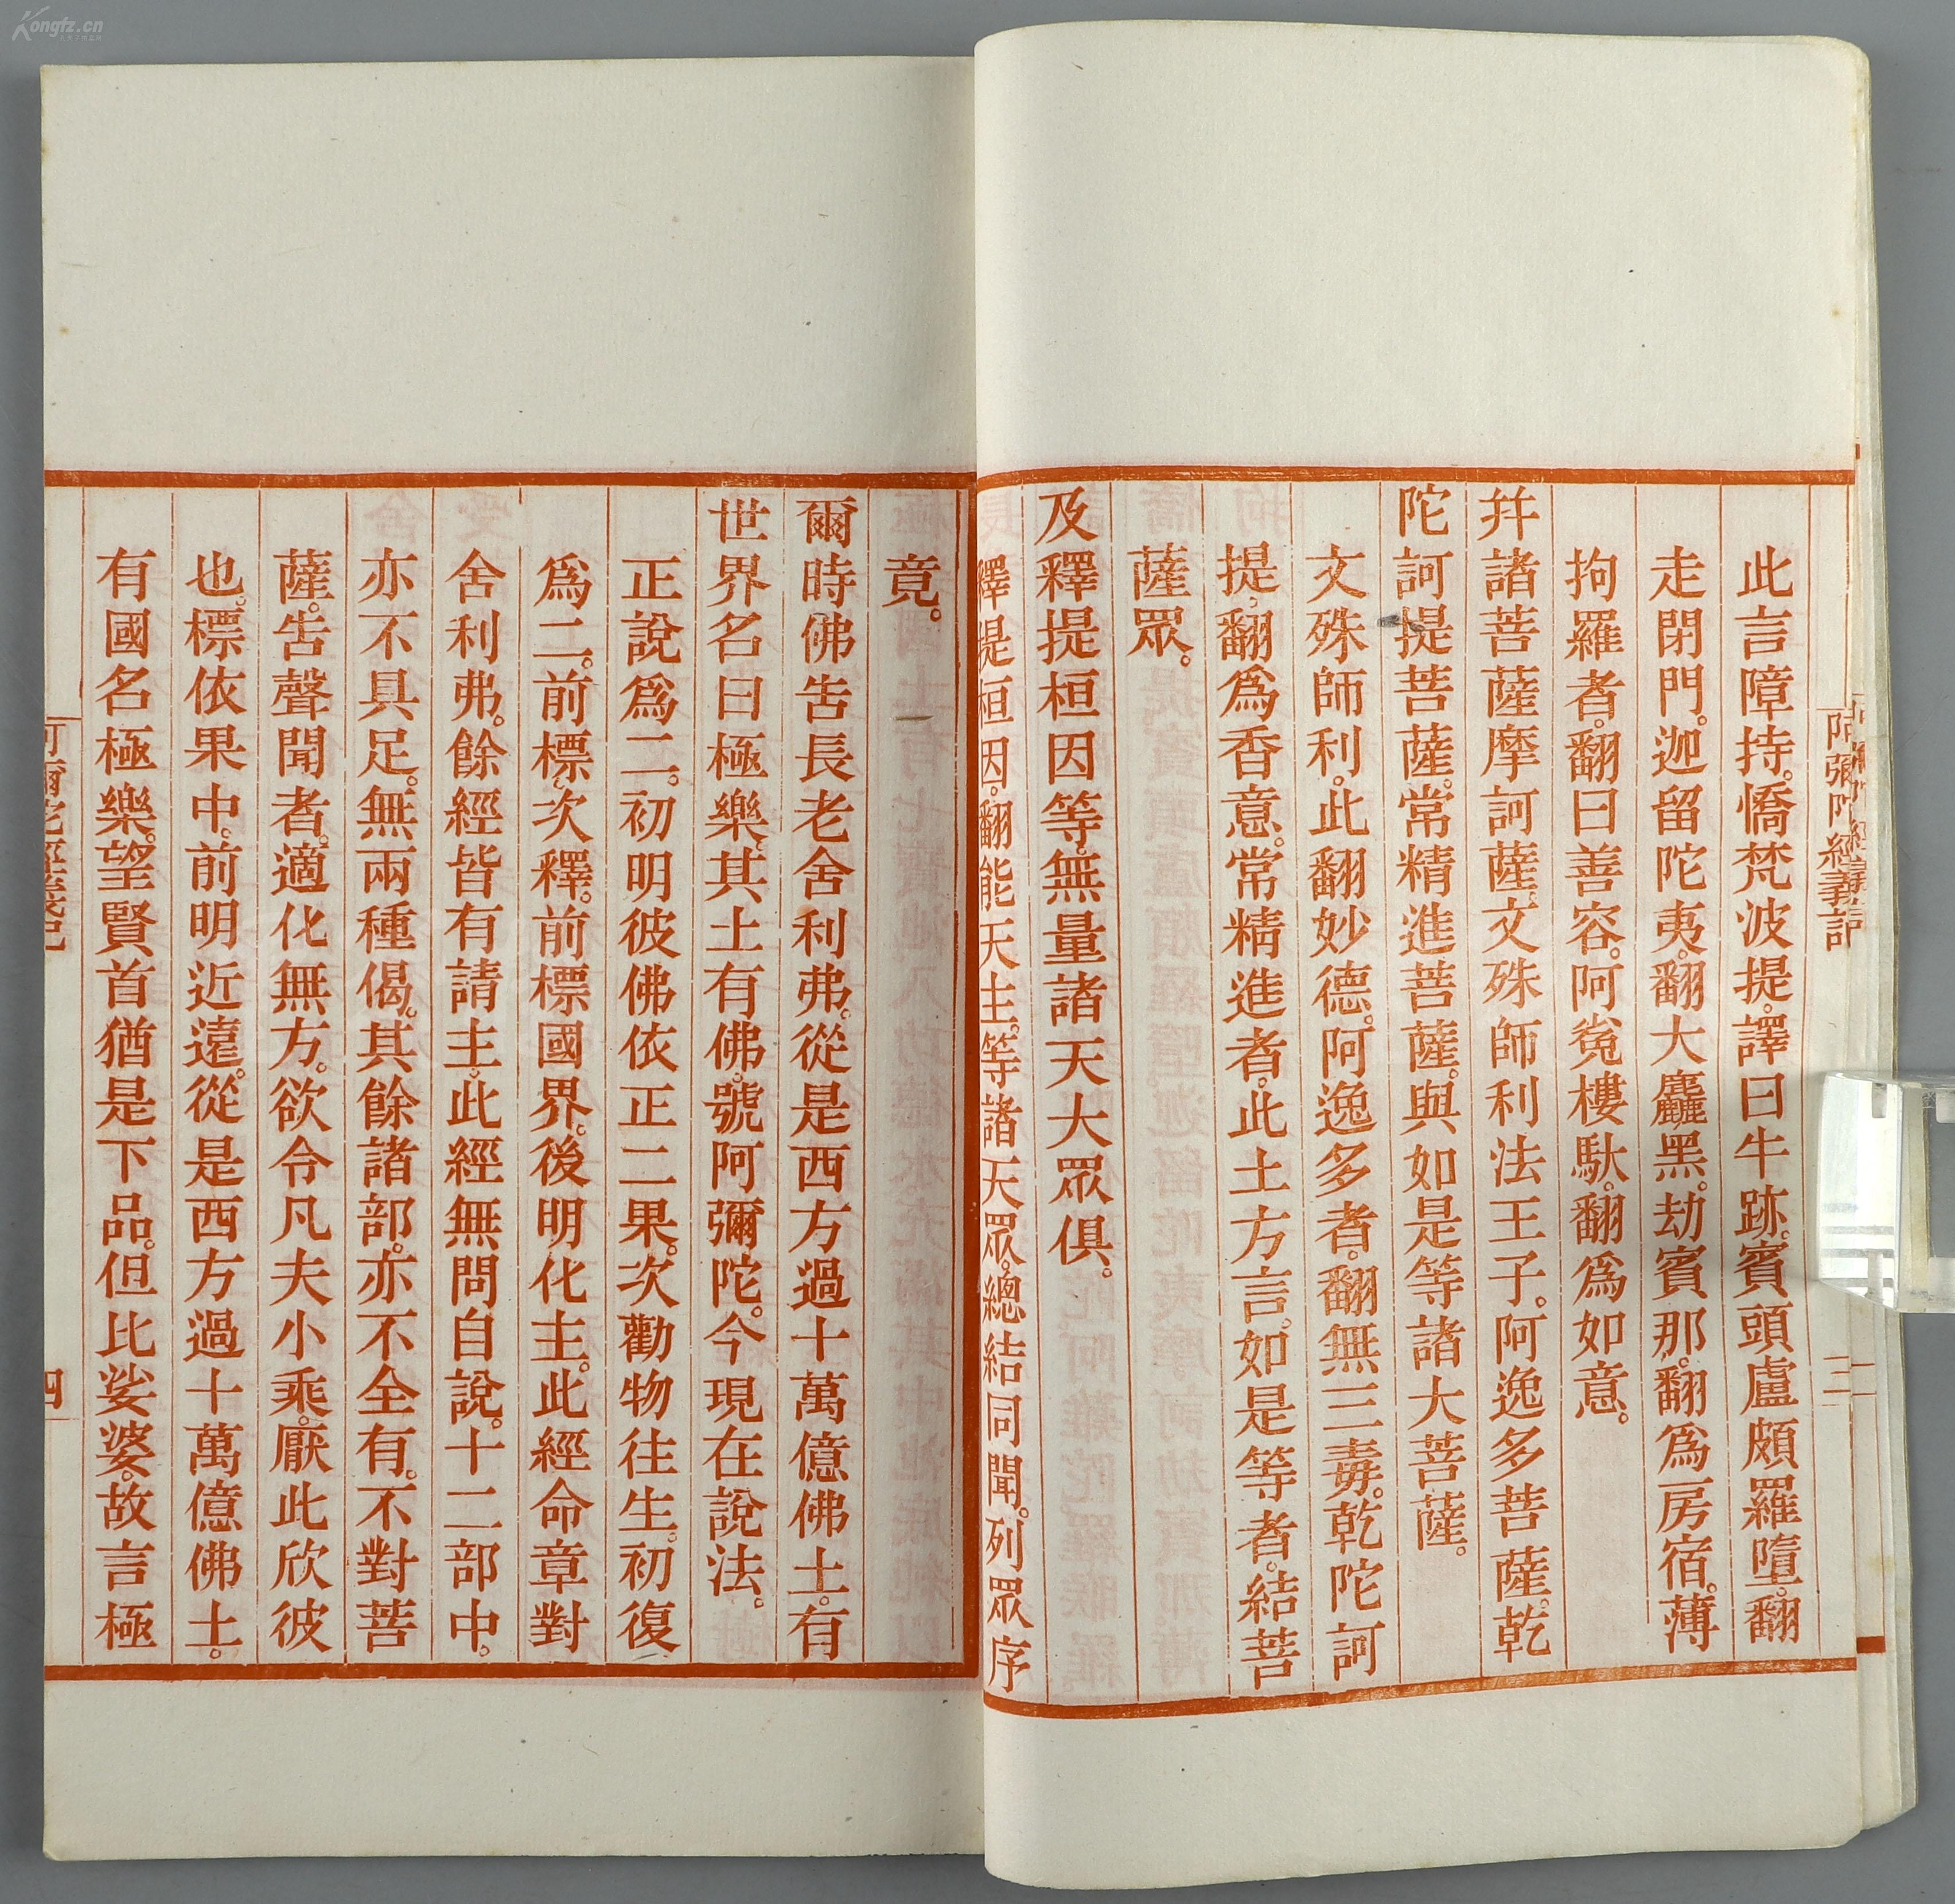 此言障持。憍梵波提。譯曰牛跡。賓頭盧頗羅墮。翻
走閉門。迦留陀夷。翻大麤黑。劫賓那。翻爲房宿。薄
拘羅者。翻曰善容。阿㝹樓馱。翻爲如意。
并諸菩薩摩訶薩。文殊師利法王子。阿逸多菩薩。乾
陀訶提菩薩。常精進菩薩。與如是等諸大菩薩。
文殊師利。此翻妙德。阿逸多者。翻無三毒。乾陀訶
提。翻爲香意。常精進者。此土方言。如是等者。結菩
薩眾。
及釋提桓因等。無量諸天大眾俱。
釋提桓因。翻能天主。等諸天眾。總結同聞。列眾序
竟。
爾時佛告長老舍利弗。從是西方過十萬億佛土。有
世界名曰極樂。其土有佛。號阿彌陀。今現在說法。
正說爲二。初明彼佛依正二果。次勸物往生。初復
爲二。前標。次釋。前標國界。後明化主。此經命章對
舍利弗。餘經皆有請主。此經無問自說。十二部中。
亦不具足。無兩種偈。其餘諸部。亦不全有。不對菩
薩。告聲聞者。適化無方。欲令凡夫小乘。厭此欣彼
也。標依果中。前明近遠。從是西方過十萬億佛土。
有國名極樂。望賢首猶是下品。但比娑婆。故言極
阿彌陀經義記
三
四
Kongfz.cn